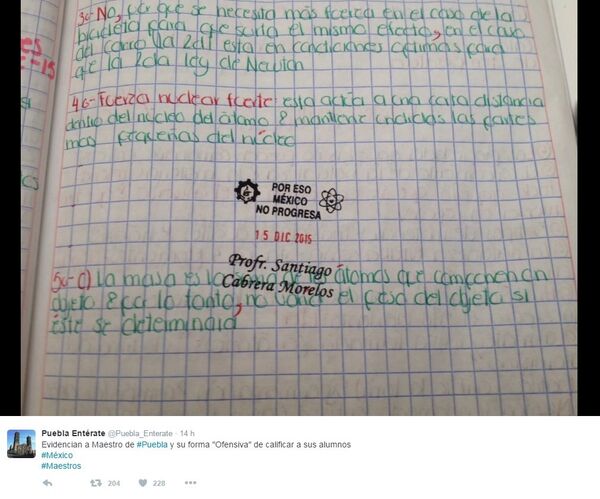 3.- No, por que se necesita más fuerza en el caso de la
bicicleta para que surja el mismo efecto, en el caso
del carro la 2da esta en condiciones optimas para
que la 2da ley de Newton
es
=15
4.- Fuerza nuclear fuerte: esta actúa a una corta distancia
dentro del núcleo del átomo & mantiene unidas las partes
mas pequeñas del núcleo
POR ESO
MÉXICO
NO PROGRESA
15 DIC 2015
Profr. Santiago
Cabrera Morelos
5.- c) La masa es la de átomos que componen un
objeto & por lo tanto, no el peso del objeto si
éste se determinaid
Puebla Entérate @Puebla_Enterate · 14 h
Evidencian a Maestro de #Puebla y su forma "Ofensiva" de calificar a sus alumnos
#México
#Maestros
204
228